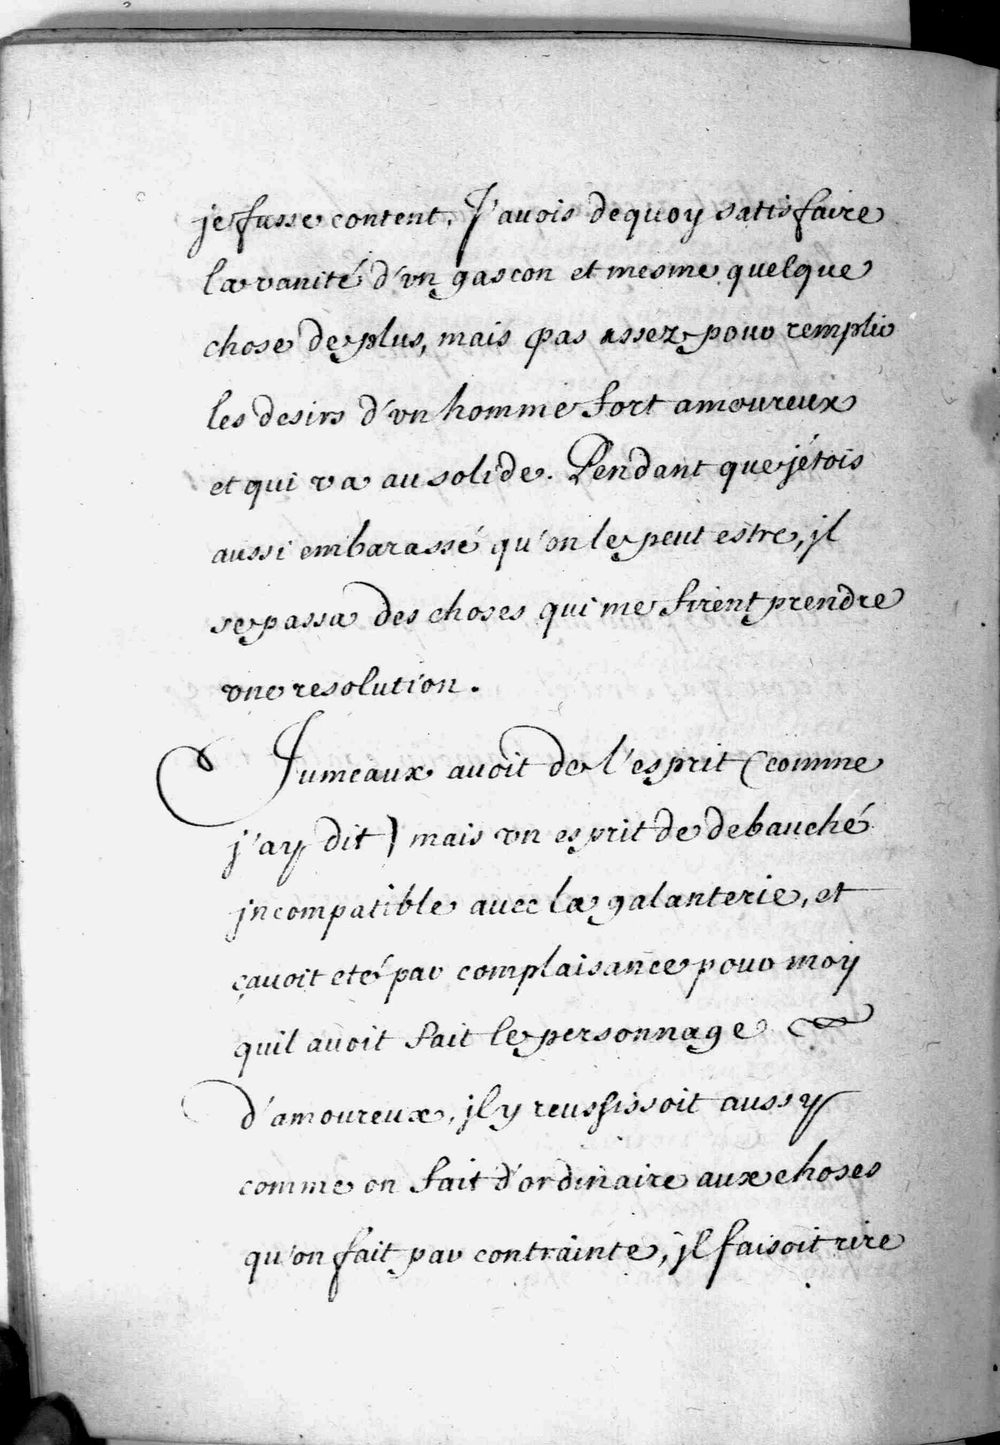 je fusse content. J'auois dequoy satisfaire
la vanité d'vn gascon et mesme quelque
chose de plus, mais pas assez pour remplir
les desirs d'vn homme fort amoureux
et qui va au solide. Pendant que jétois
aussi embarassé qu'on le peut estre, jl
se passa des choses qui me firent prendre
vne resolution.
Jumeaux auoit de l'esprit (comme
j'ay dit) mais vn esprit de debauché
jncompatible auec la galanterie, et
çauoit eté par complaisance pour moy
quil auoit fait le personnage
d'amoureux, jl y reussissoit aussy
comme on fait d'ordinaire aux choses
qu'on fait par contrainte, jl faisoit rire